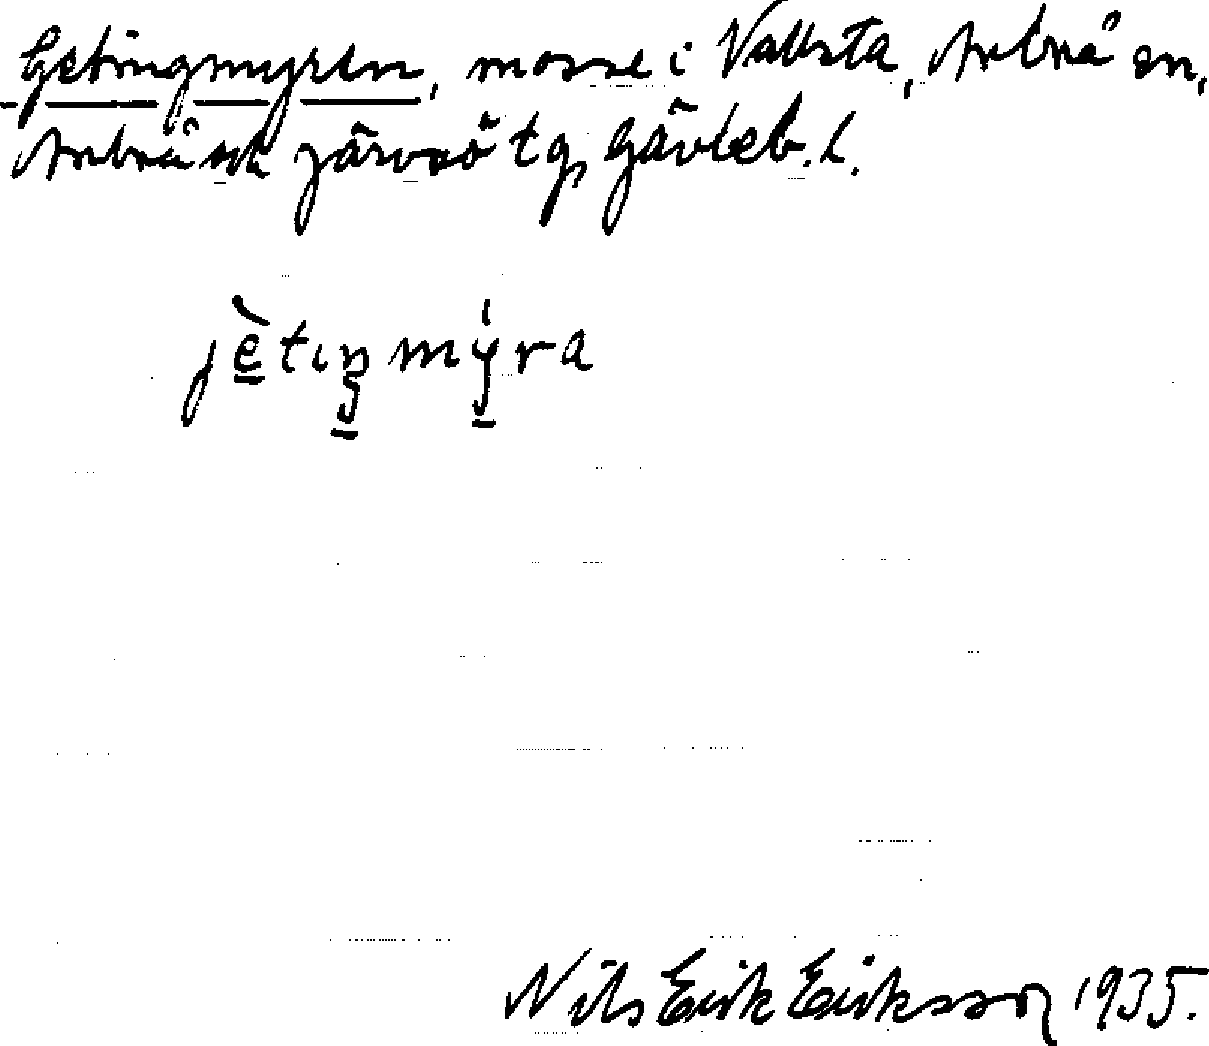 Getingmyren, mosse i Vallsta, Arbrå sn,
Arbrå och Järvsö tg, Gävleb. l.
jètıŋmýra
Nils Erik Eriksson 1935.